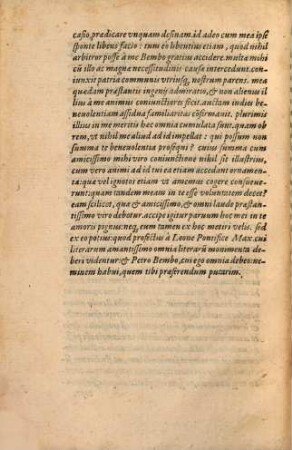 casio, prædicare vnquam desinam. id adeo cum mea ipse
sponte libens facio: tum eo libentius etiam, quod nihil
arbitror posse à me Bembo gratius accidere. multa mihi
cū illo ac magna necessitudinis causæ intercedunt. con
iunxit patria communis vtriusq; nostrum parens. mea
quædam præstantis ingenij admiratio, & non alienus il
lius à me animus coniunctiores fecit. auctam indies be
neuolentiam assidua familiaritas cōfirmauit. plurimis
illius in me meritis hæc omnia cumulata sunt. quam ob
rem, vt nihil me aliud ad id impellat: qui possum non
summa te beneuolentia prosequi? cuius summa cum
amicissimo mihi viro coniunctione nihil sit illustrius,
cum vero animi ad id tui ea etiam accedant ornamen
ta: quæ vel ignotos etiam vt amemus cogere consueue
runt: quam tandem meam in te esse voluntatem decet?
eam scilicet, qua & amicissimo, & omni laude præstan
tissimo viro debetur. accipe igitur paruum hoc mei in te
amoris pignus: neq; eum tamen ex hoc metiri velis. sed
ex eo potius: quod profectus à Leone Pontifico Max. cui
literarum amantissimo omnia literarū monimenta de
beri videntur: & Petro Bembo, cui ego omnia debeo: ne
minem habui, quem tibi præferendum putarim.